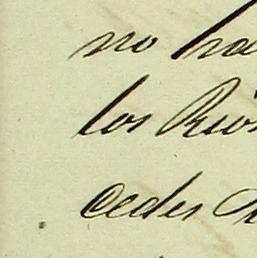 no ha
los Rios
cedes